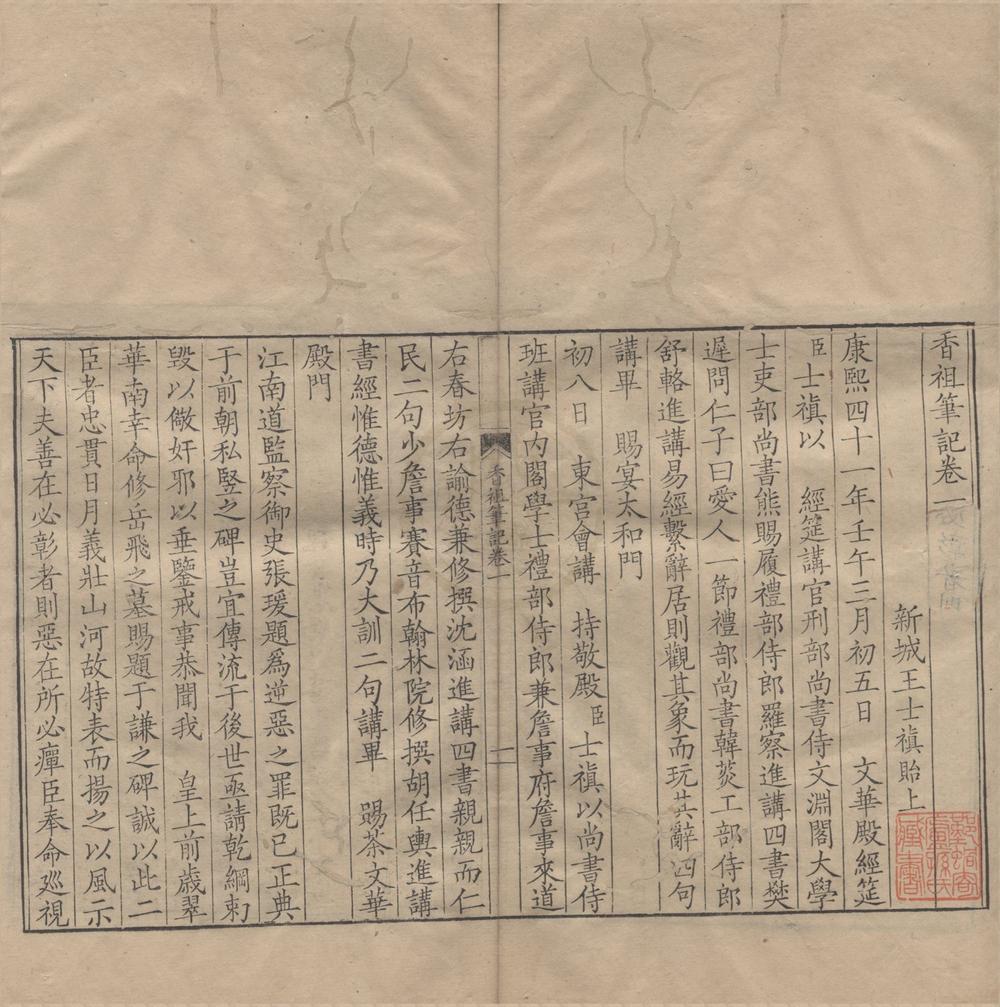 香祖筆記卷一
新城王士禛貽上
康熙四十一年壬午三月初五日 文華殿經筵
臣士禛以 經筵講官刑部尚書侍文淵閣大學
士吏部尚書熊賜履禮部侍郎羅察進講四書樊
遲問仁子曰愛人一節禮部尚書韓菼工部侍郎
舒輅進講易經繫辭居則觀其象而玩其辭四句
講畢 賜宴太和門
初八日 東宮會講 持敬殿臣士禛以尚書侍
班講官內閣學士禮部侍郎兼詹事府詹事來道
香祖筆記卷一
一
右春坊右諭德兼修撰沈涵進講四書親親而仁
民二句少詹事賽音布翰林院修撰胡任輿進講
書經惟德惟義時乃大訓二句講畢 賜茶文華
殿門
江南道監察御史張瑗題為逆惡之罪既已正典
于前朝私竪之碑豈宜傳流于後世亟請乾綱刺
毀以儆奸邪以垂鑒戒事恭聞我 皇上前歲翠
華南幸命修岳飛之墓賜題于謙之碑誠以此二
臣者忠貫日月義壯山河故特表而揚之以風示
天下夫善在必彰者則惡在所必癉臣奉命廵視